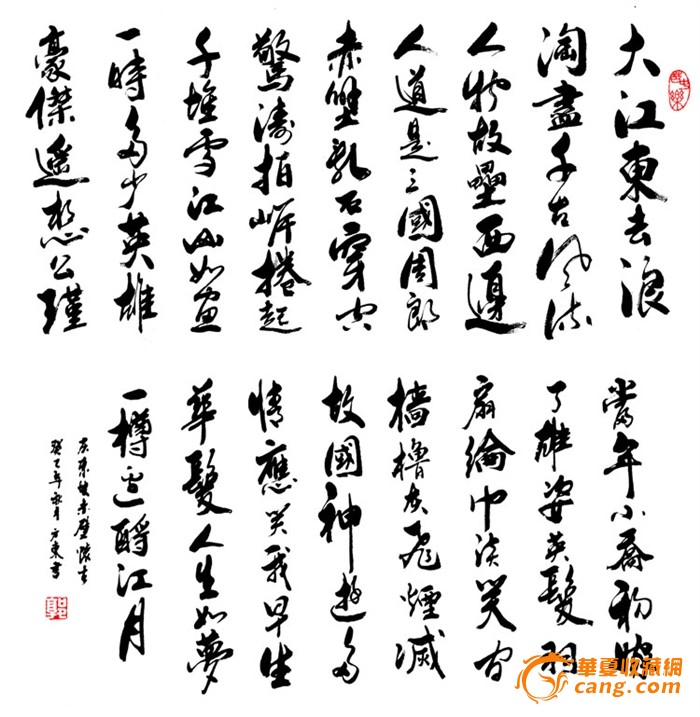 大江東去浪
淘盡千古風流
人物故壘西邊
人道是三國周郎
赤壁乱石穿空
驚濤拍岸捲起
千堆雪江山如畫
一時多少英雄
豪傑遥想公瑾
當年小喬初嫁
了雄姿英髮羽
扇綸巾淡笑間
檣櫓灰飛煙滅
故國神遊多
情應笑我早生
華髮人生如夢
一樽還酹江月
東坡赤壁懷古
癸巳年秋月
華夏收藏網
cang.com